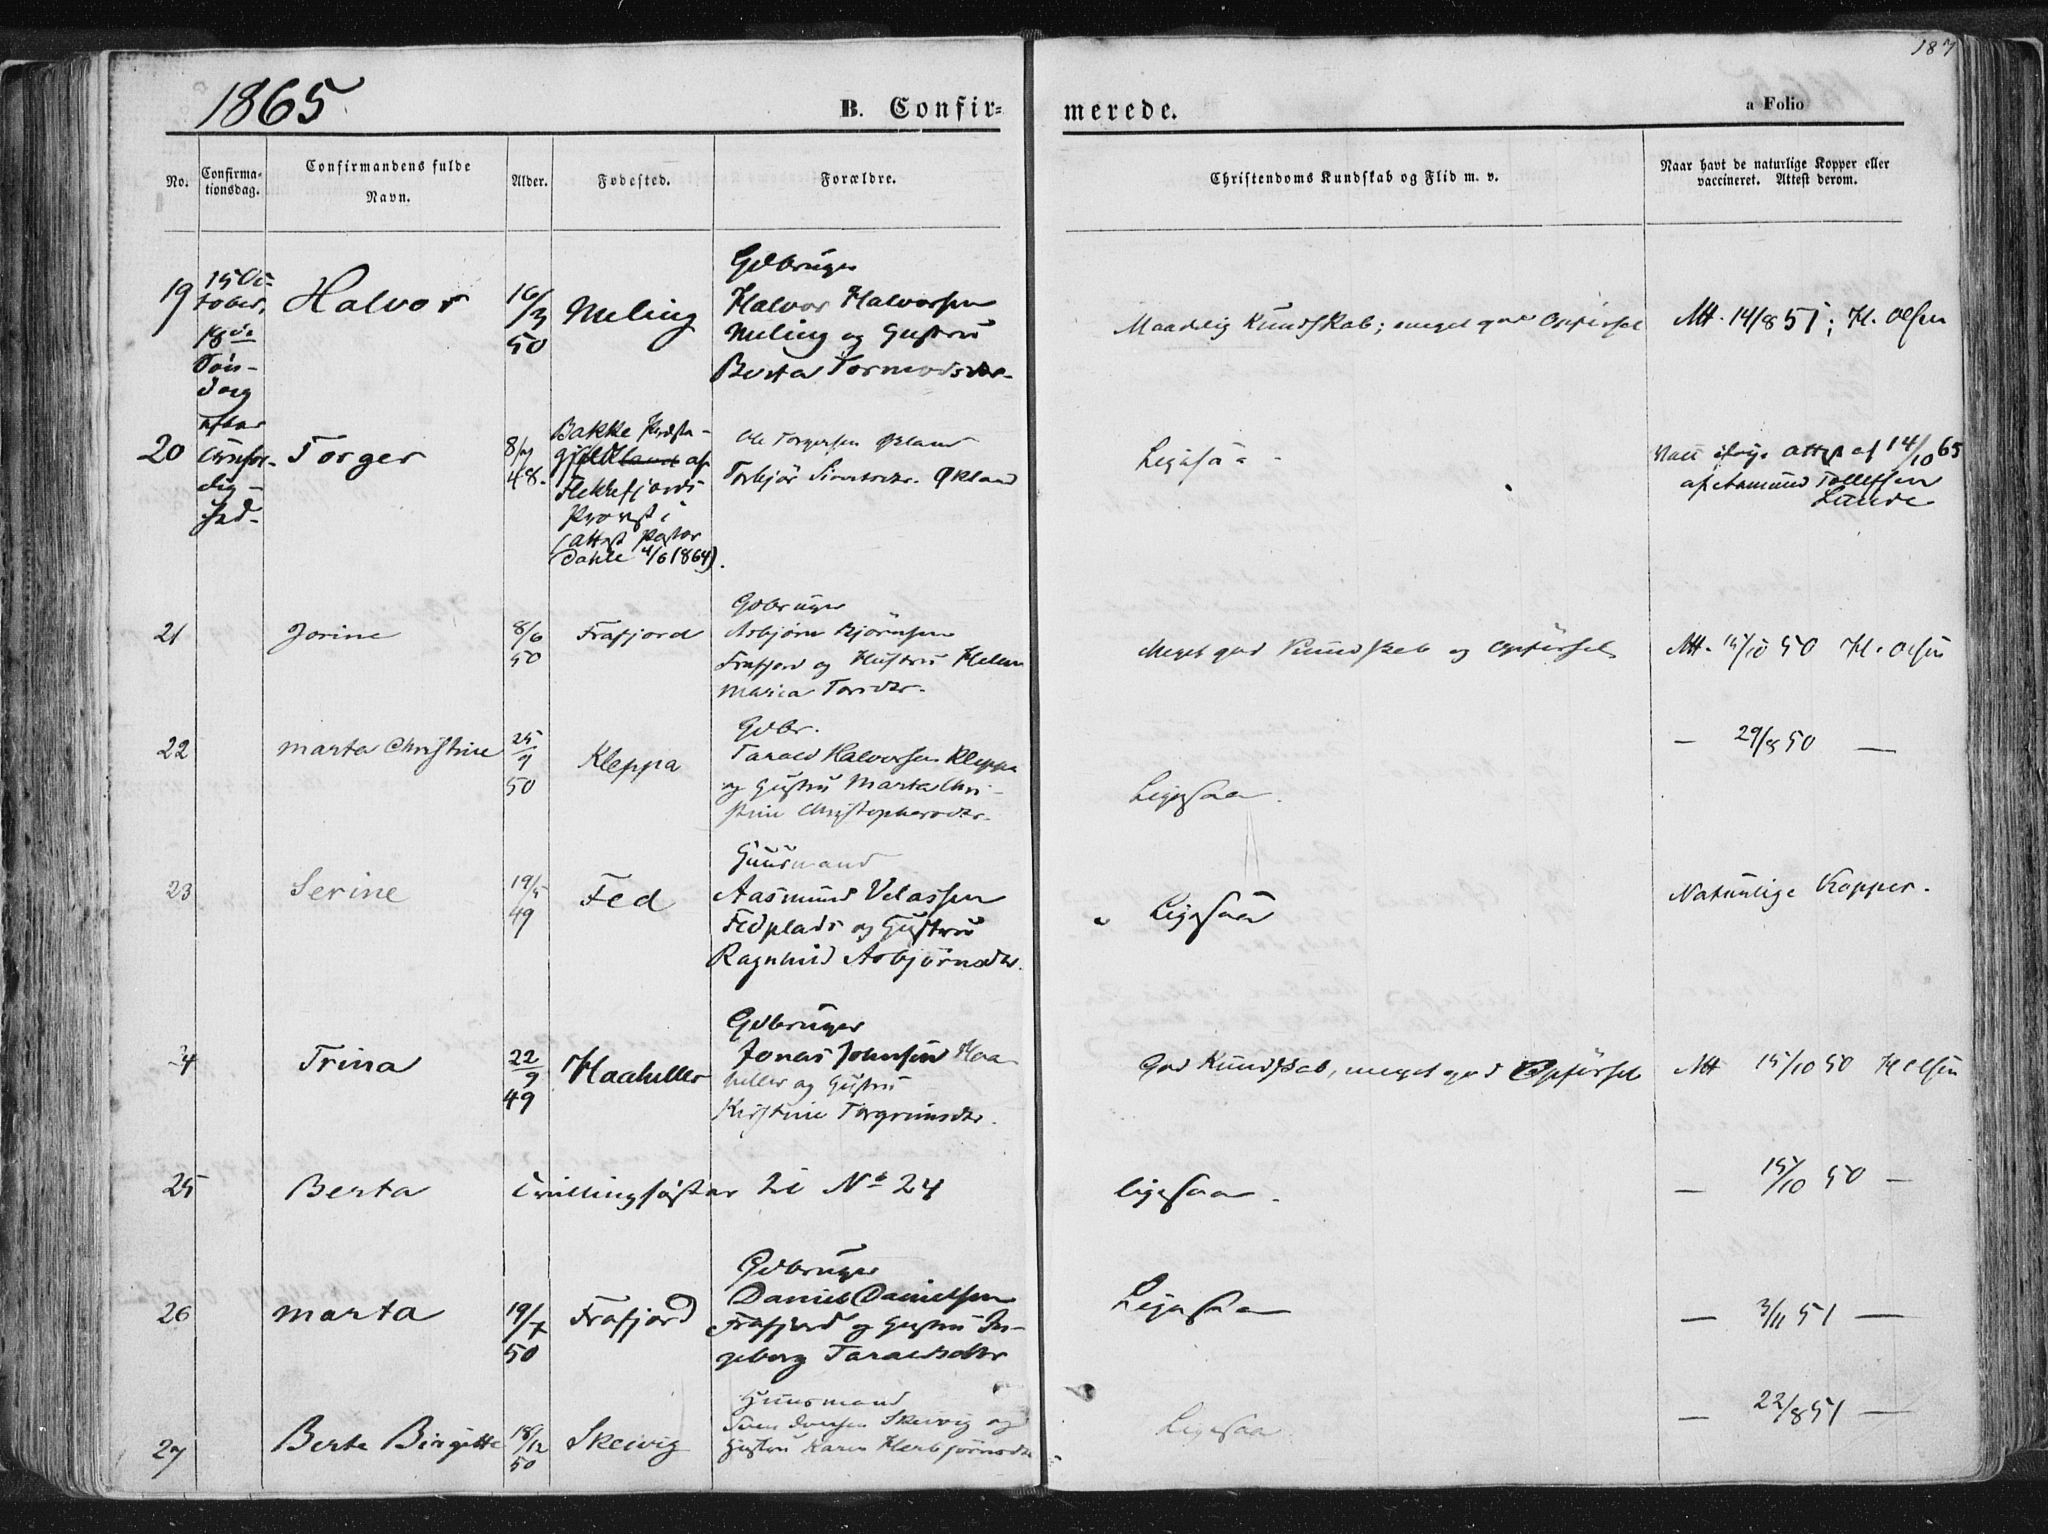 187
1865
B. Confir=
merede.
a Folio
No.
Confirma-
tionsdag.
Confirmandens fulde
Navn.
Alder.
Fødested.
Forældre.
Christendoms Kundskab og Flid m. v.
Naar havt de naturlige Kopper eller
vaccineret. Attest derom.
19
15 Oc-
tober,
18de
Søn-
dag
efter
Halvor
16/3
50
Meling
Gdbruger
Halvor Halvorsen
Meling og Hustru
Berta Tormodsdtr.
Maadelig Kundskab; meget god Opførsel
Att. 14/8 51; H. Olsen
20
Torger
48.
Bakke Præste-
gjeld af
Flekkefjords
Provsti
(attest Pastor
Dahle 4/6 1864).
Ole Torgersen Økland
Torbjør Sivertsdtr. Økland
Ligesaa
attest af 14/10 65
af Aamund Tollefsen
Lunde
21
Jorine
8/6
50
Frafjord
Gdbruger
Asbjørn Bjørnsen
Frafjord og Hustru Helene
Maria Torsdtr.
Meget god Kundskab og Opførsel
Att. 15/10 50 H. Olsen
22
Marta Christine
25
50
Kleppa
Gdbr.
Tarald Halvorsen Kleppa
og Hustru Marta Chri-
stine Christophersdtr.
Ligesaa.
— 29/8 50 —
23
Serine
19/5
49
Fed
Huusmand
Aasmund Velassen
Fedplads og Hustru
Ragnhild Asbjørnsdtr.
Ligesaa
Naturlige Kopper.
4
Trina
22/9
49
Haaheller
Gdbruger
Jonas Johnsen Haa
heller og Hustru
Kirstine Torgrimsdtr.
God Kundskab, meget god Opførsel
Att 15/10 50 H Olsen
25
Berta
Tvillingsøster til No 24
ligesaa.
— 15/10 50 —
26
Marta
19/7
50
Frafjord
Gdbruger
Daniel Danielsen
Frafjord og Hustru In-
geborg Taraldsdtr
Ligesaa
— 3/11 51 —
27
Berte Birgitte
18/12
50
Skeivig
Huusmand
Sven Skeivig og
Hustru Karen Herbjørnsdtr
Ligesaa
— 22/8 51 —